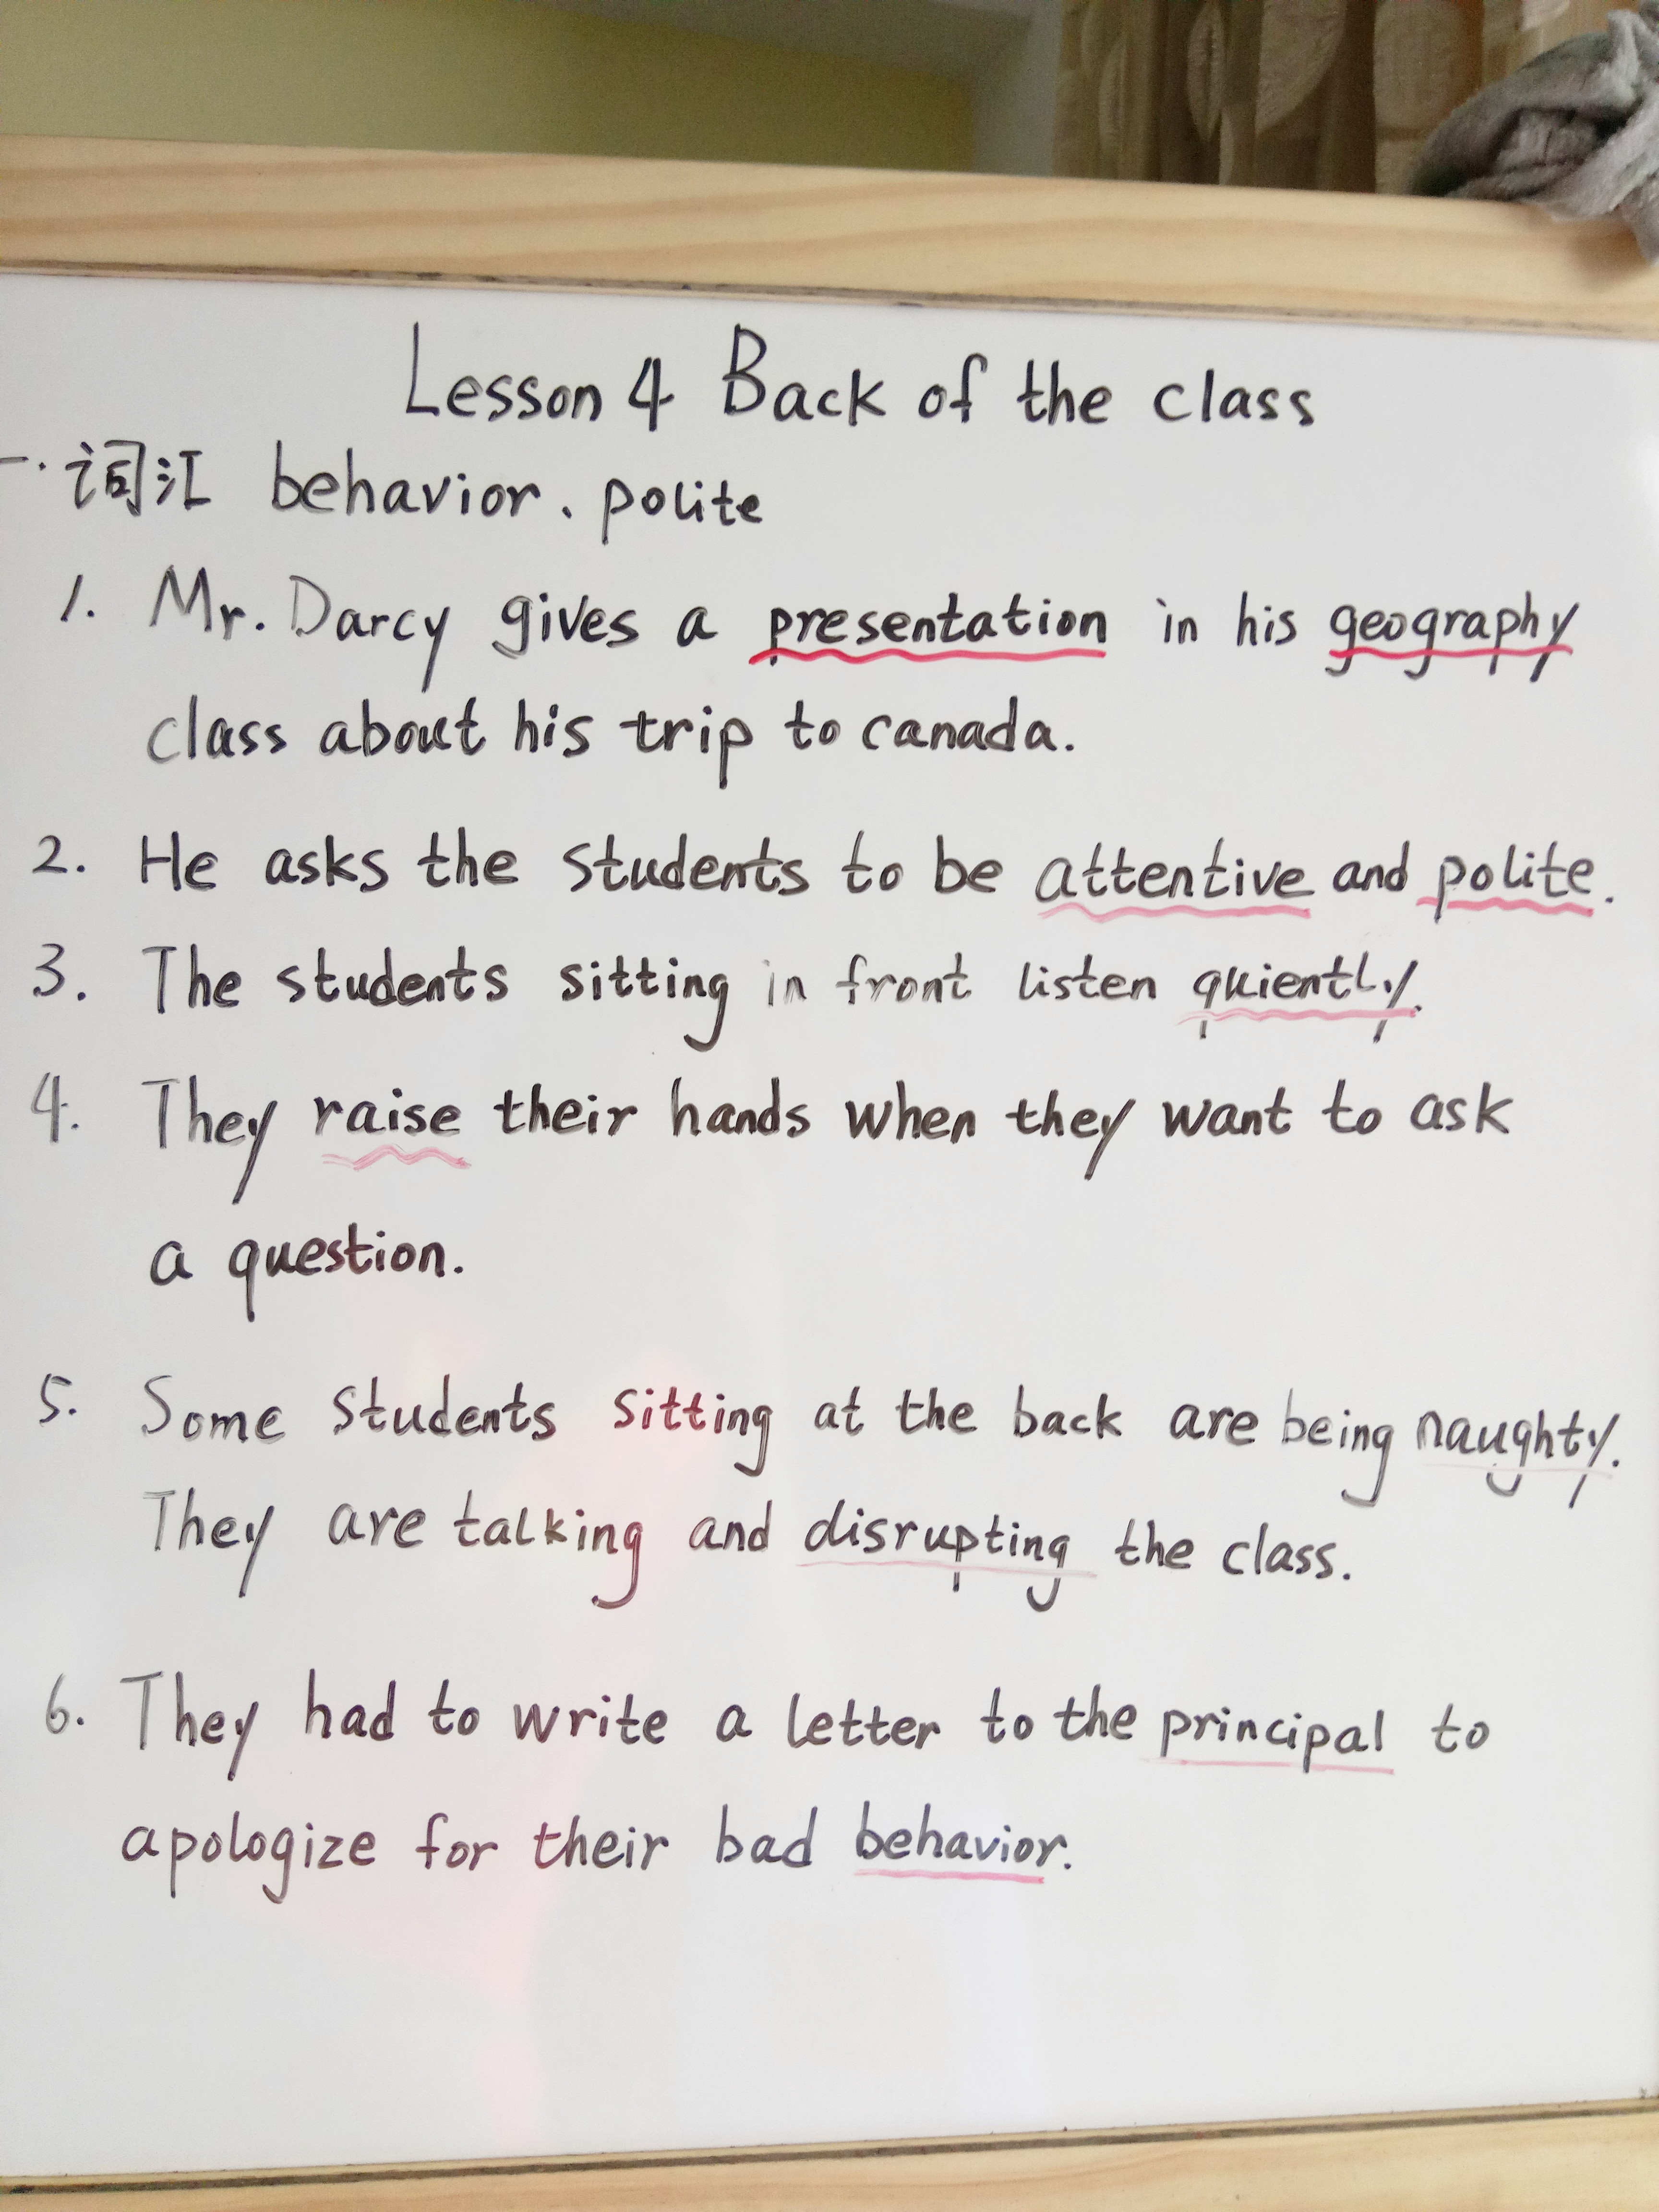 Lesson 4 Back of the class
一.词汇 behavior、polite
1. Mr. Darcy gives a presentation in his geography
class about his trip to canada.
2. He asks the students to be attentive and polite.
3. The students sitting in front listen quiently.
4. They raise their hands when they want to ask
a question.
5. Some students sitting at the back are being naughty.
They are talking and disrupting the class.
6. They had to write a letter to the principal to
apologize for their bad behavior.